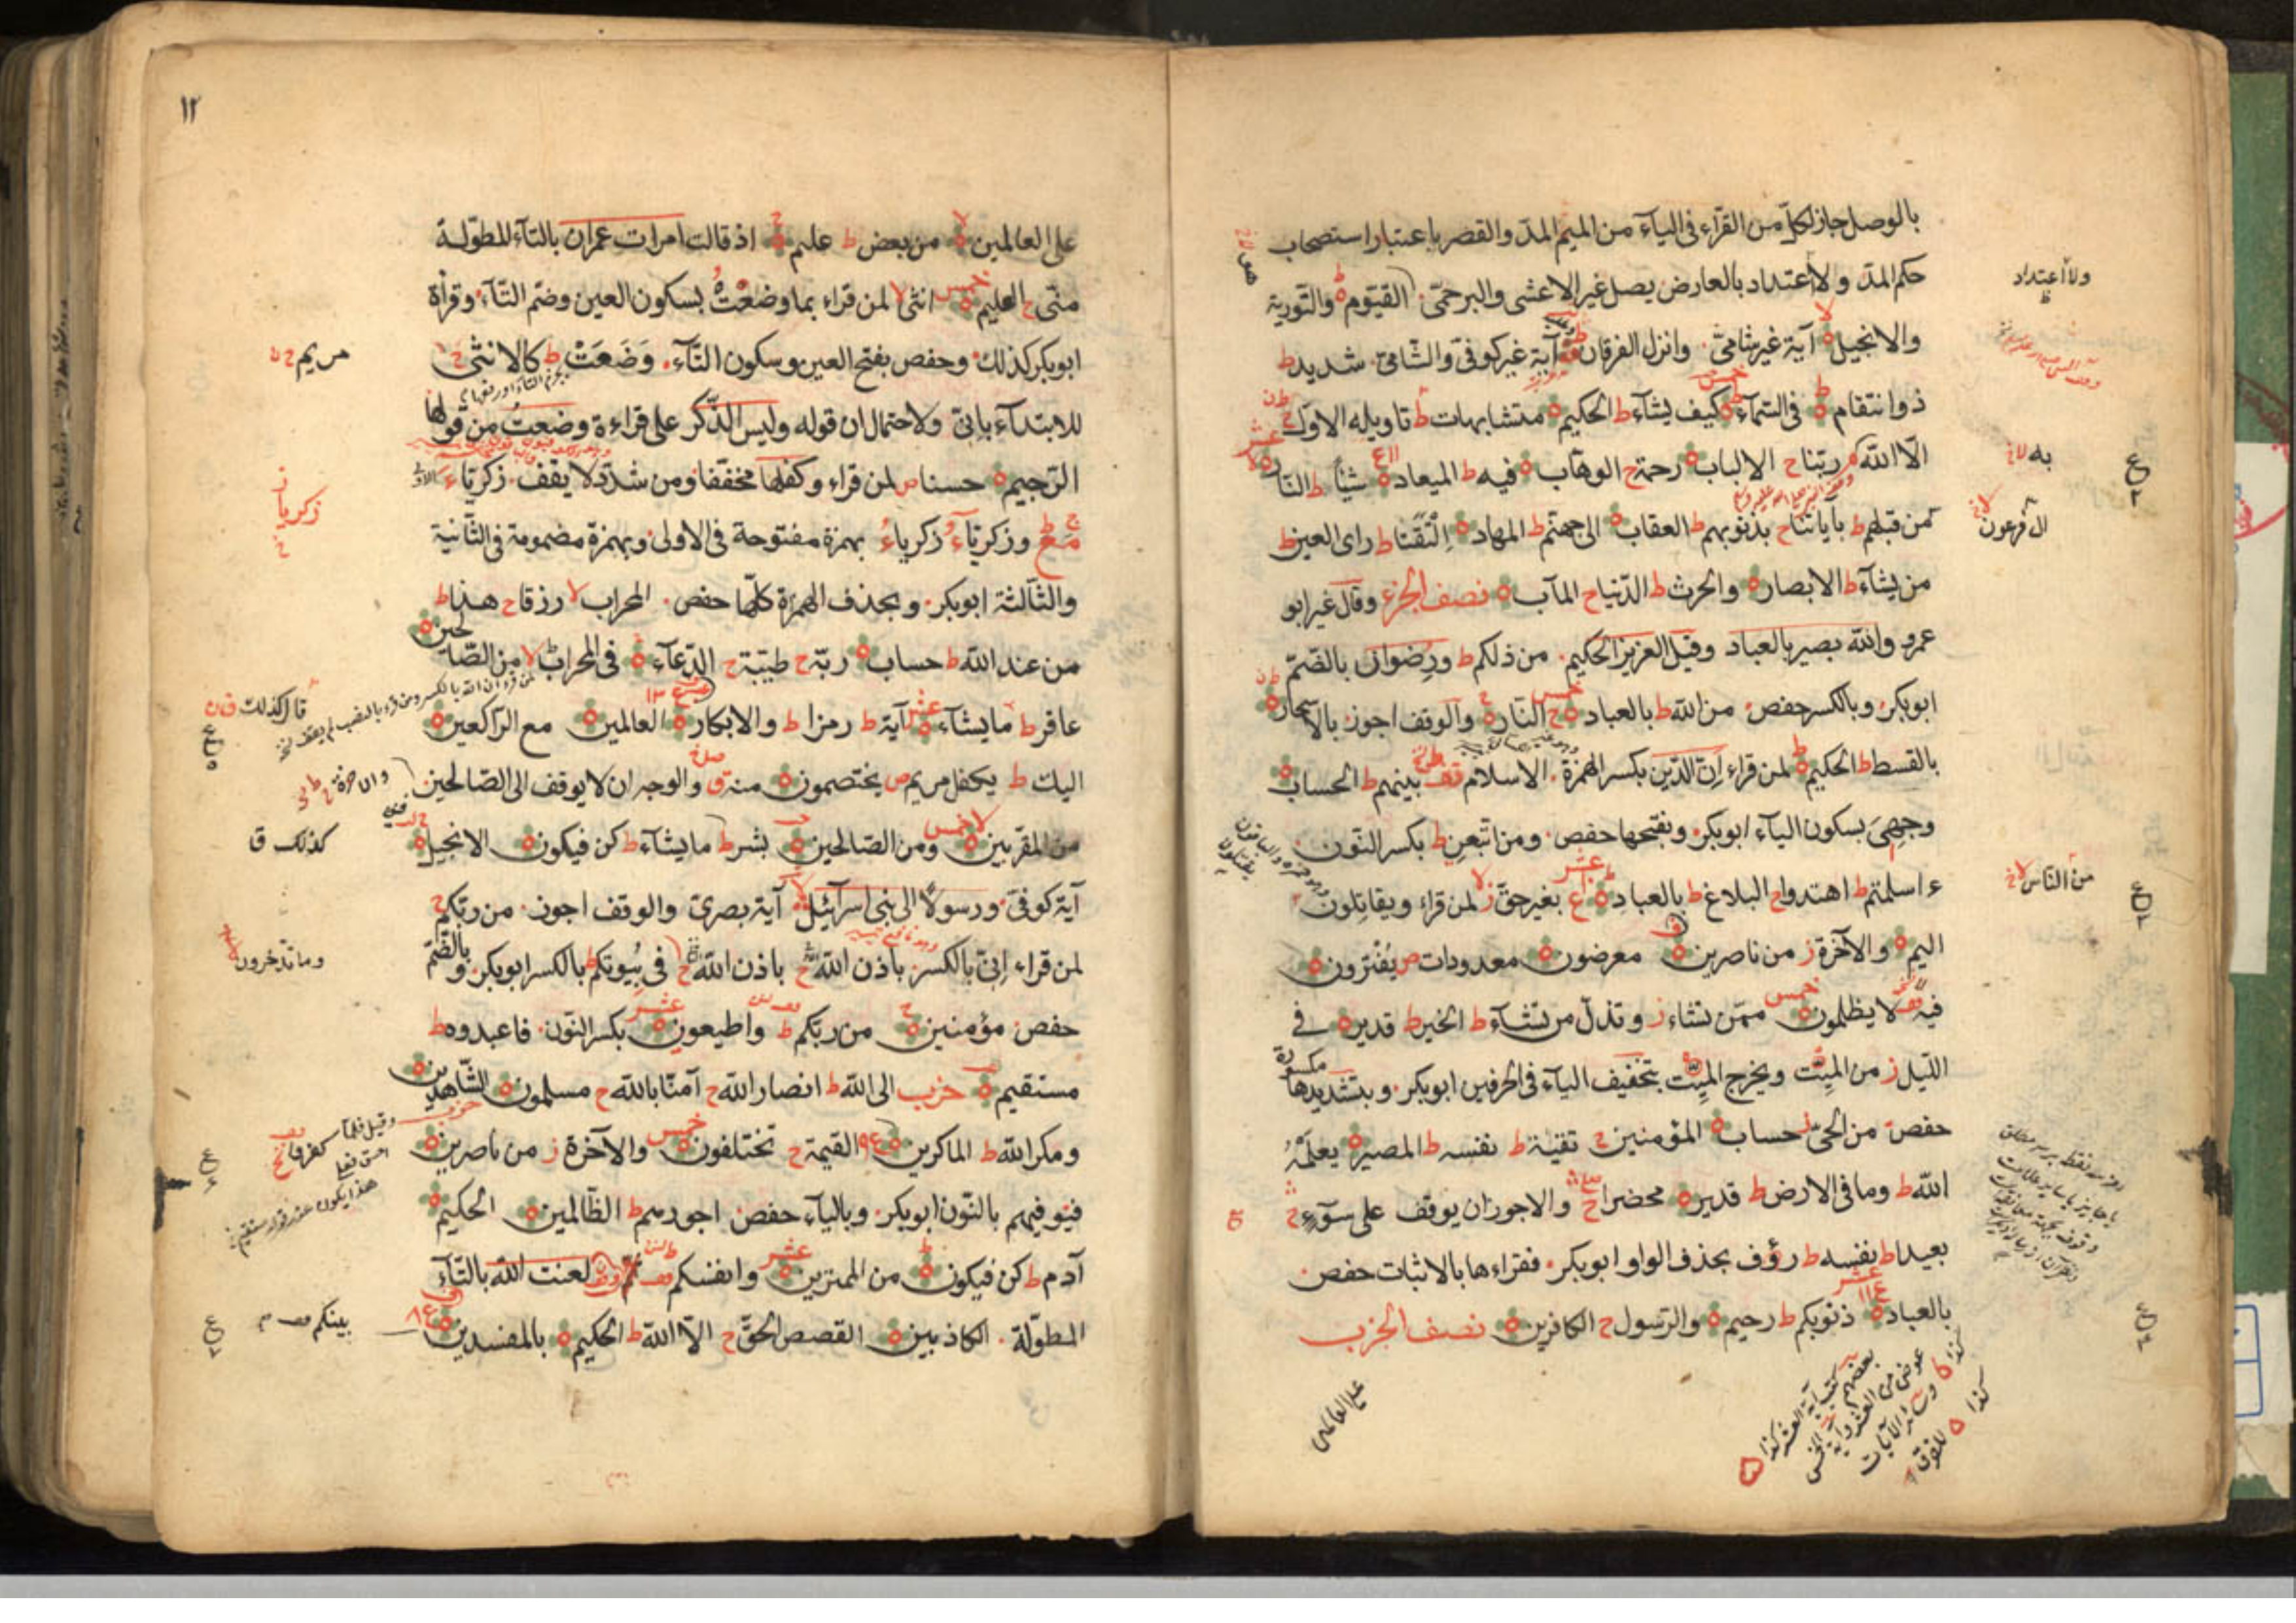 بالوصل جاز لكلّ من القرّاء فى الياء من الميم المدّ والقصر باعتبار استصحاب
حكم المدّ ولا اعتداد بالعارض يصل غير الاعشى والبرجمىّ القيّوم ط والتّورية
والانجيل لا آية غير شامىّ وانزل الفرقان ط آية غير كوفىّ والشّامىّ شديد ط
ذو انتقام ط فى السّماء ط خمس كيف يشاء ط الحكيم متشابهات ط تاويله الاوّل
الّا الله م ربّنا ح الالباب رحمة ح الوهّاب فيه ط الميعاد شيأ ط النّار
من قبلهم ط بآياتنا ح بذنوبهم ط العقاب الى جهنّم ط المهاد التقتا ط راى العين ط
من يشاء ط الابصار والحرث ط الدّنيا ح المآب نصف الجزء وقال غير ابو
عمرو والله بصير بالعباد وقيل العزيز الحكيم من ذلكم ط ورُضوان بالضّمّ
ابوبكر وبالكسر حفص من الله ط بالعباد ح خمس النّار ح والوقف اجوز بالاسحار
بالقسط ط الحكيم ط لمن قراء اِنّ الدّين بكسر الهمزة الاسلام قف بينهم ط الحساب
وجهى بسكون الياء ابوبكر وبفتحها حفص ومن اتّبعن ط بكسر النّون
ء اسلمتم ط اهتدوا ح البلاغ ط بالعباد عشر بغير حقّ ز لا لمن قراء ويقاتلون
اليم والآخرة ز من ناصرين معرضون معدودات ص يفترون
فيه قف لا يظلمون خمس ممّن تشاء ز وتذلّ من تشاء ط الخير ط قدير فى
اللّيل ز من الميت ويخرج الميت بتخفيف الياء فى الحرفين ابوبكر وبتشديدها مكسورة
حفص من الحىّ ز حساب المؤمنين ح تقية ط نفسه ط المصير يعلمه
الله ط وما فى الارض ط قدير محضرا ح والاجوز ان يوقف على سوء ح
بعيدا ط نفسه ط رؤف بحذف الواو ابوبكر فقراءها بالاثبات حفص
بالعباد عشر ذنوبكم ط رحيم والرّسول ح الكافرين نصف الحزب
ولا اعتداد
به لا
آل فرعون لا
من النّاس لا
على العالمين
١٢
على العالمين لا من بعض ط عليم ح اذ قالت امرات عمران بالتاء المطوّلة
منّى ح العليم خمس انثى لا لمن قراء بما وضعتُ بسكون العين وضمّ التّاء وقراءة
ابوبكر كذلك وحفص بفتح العين وسكون التّاء وَضَعَتْ ط كالانثى ح
للابتداء بانّى ولاحتمال ان قوله وليس الذّكر على قراءة وضعتُ من قولها
الرّجيم حسنا ص لمن قراء وكفلها مخفّفا ومن شدّد لا يقف زكرياء
وزكرياء زكرياء بهمزة مفتوحة فى الاولى وبهمزة مضمومة فى الثّانية
والثّالثة ابوبكر وبحذف الهمزة كلّها حفص المحراب لا رزقا ح هذا ط
من عند الله ط حساب ربّه ح طيّبة ح الدّعاء فى المحراب لا من الصّالحين
عاقر ط ما يشاء عشر آية ط رمزا ط والابكار العالمين مع الرّاكعين
اليك ط يكفل مريم ص يختصمون منه ق والوجه ان لا يوقف الى الصّالحين
من المقرّبين لا خمس ومن الصّالحين بشر ط ما يشاء ط كن فيكون الانجيل
آية كوفىّ ورسولًا الى بنى اسرآئيل لا آية بصرىّ والوقف اجوز من ربّكم ح
لمن قراء اِنّى بالكسر باذن الله ح باذن الله ح فى بيوتكم ط بالكسر ابوبكر وبالضّمّ
حفص مؤمنين ح من ربّكم ط واطيعون عشر بكسر النّون فاعبدوه ط
مستقيم حزب الى الله ط انصار الله ح آمنّا بالله ح مسلمون الشّاهدين
ومكر الله ط الماكرين القيمة ح تختلفون خمس والآخرة ز من ناصرين
فنوفيهم بالنّون ابوبكر وبالياء حفص اجورهم ط الظّالمين الحكيم
آدم ط كن فيكون من الممترين عشر وانفسكم قف لعنت الله بالتّاء
المطوّلة الكاذبين القصص الحقّ ح الّا الله ط الحكيم بالمفسدين
مريم
زكريا
قال كذلك
كذلك ق
وما تدّخرون
بينكم